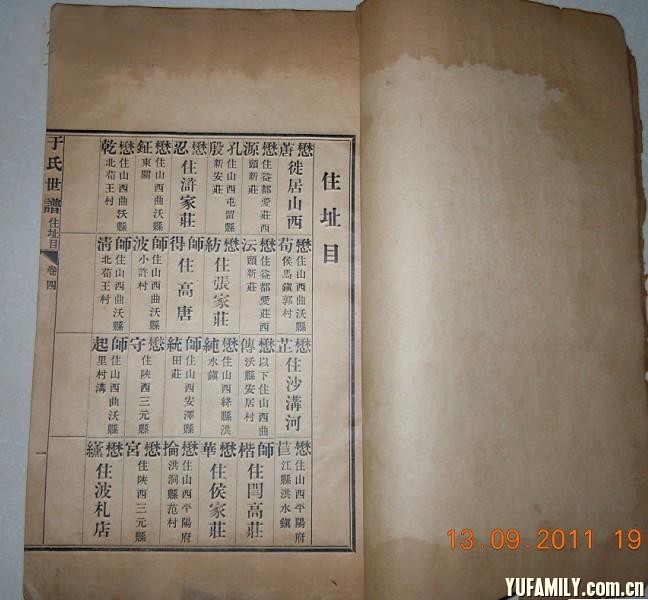 住址目
懋 徙居山西
懋源 住益都愛莊西頭新莊
孔殷 住山西屯留縣新安莊
懋忍 住滸家莊
懋鉦 住山西曲沃縣東關
懋乾 住山西曲沃縣北荀王村
懋荀 住山西曲沃縣侯馬鎮郭村
懋沄 住益都愛莊西頭新莊
懋紡 住張家莊
師得 住高唐
師波 住山西曲沃縣小許村
師清 住山西曲沃縣北荀王村
懋芷 住沙溝河
懋傳 以下住山西曲沃縣安居村
懋純 住山西絳縣洪水鎮
師統 住山西安澤縣田莊
懋守 住陝西三元縣
師起 住山西曲沃縣里村溝
懋苣 住山西平陽府江縣洪水鎮
師楷 住閆高莊
懋華 住侯家莊
懋掄 住山西平陽府洪洞縣范村
懋宮 住陝西三元縣
懋纁 住波札店
于氏世譜 住址目 卷四 一
13.09.2011 19
YUFAMILY.com.cn